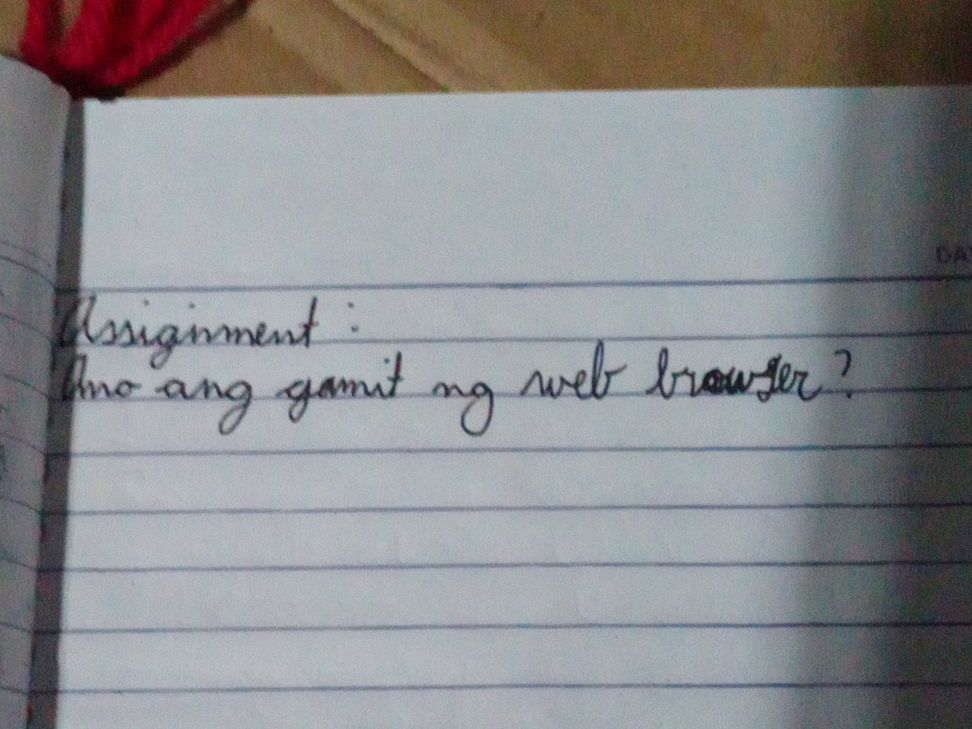 Assignment :
Ano ang gamit ng web browser?
DA